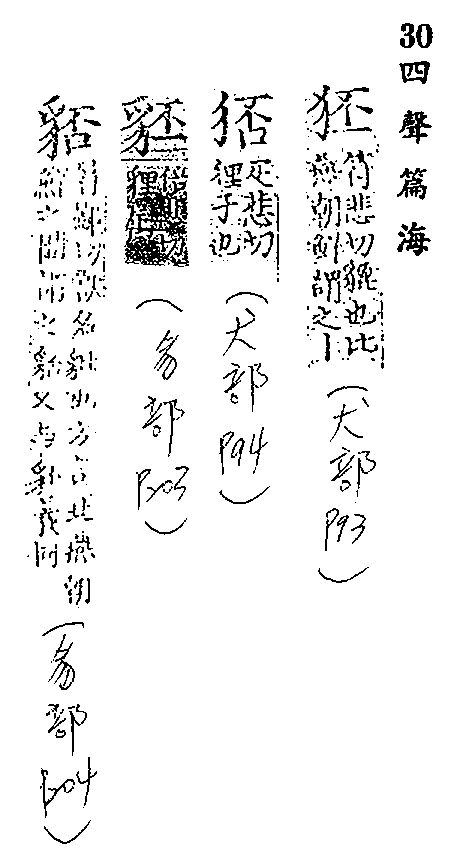 30 四聲篇海
狉
符悲切貔也北
燕朝鮮謂之丨
(犬部
P93)
㹪
疋悲切
狸子也
(犬部
P94)
豾
狸
(豸部
P203)
切獸名貍出方言北燕朝
鮮之間謂之貊又与豾義同
(豸部
P204)